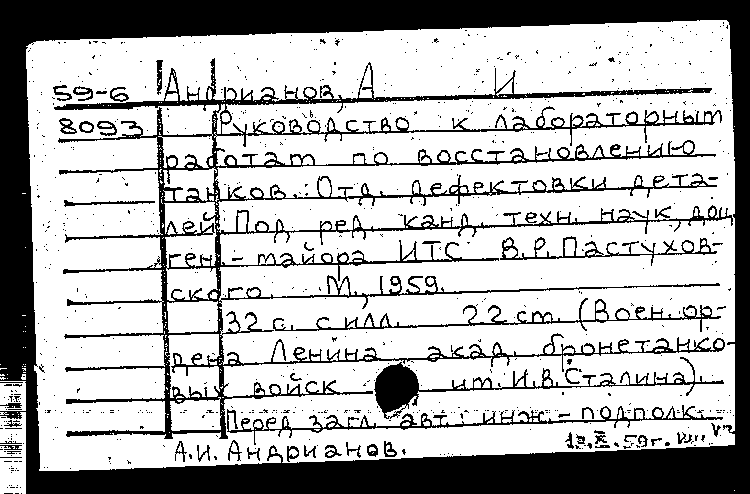 59-6 Андрианов, А И
8093 Руководство к лабораторным
работам по восстановлению
танков. Отд. дефектовки дета-
лей. Под ред. канд. техн. наук, доц.
ген.-майора ИТС В.Р. Пастухов-
ского. М., 1959.
32 с. с илл. 22 см. (Воен. ор-
дена Ленина акад. бронетанко-
вых войск им. И.В. Сталина).
Перед загл. авт.: инж.-подполк.
А.И. Андрианов.
59 г.